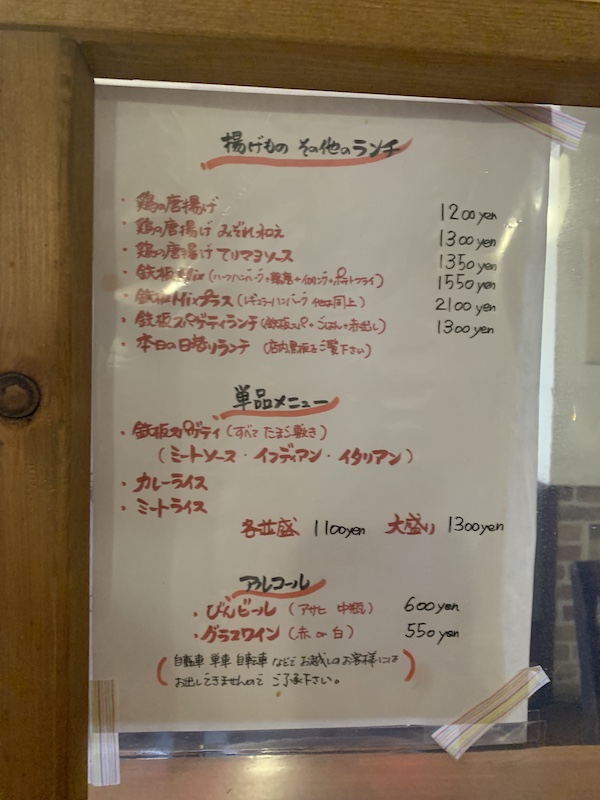 揚げもの その他のランチ
・鶏の唐揚げ 1200yen
・鶏の唐揚げ みぞれ和え 1300yen
・鶏の唐揚げ てりマヨソース 1350yen
・鉄板Mix(ハーフハンバーグ+鶏唐+イカリング+ポテトフライ) 1550yen
・鉄板Mixプラス(レギュラーハンバーグ 他は同上) 2100yen
・鉄板スパゲティランチ(鉄板スパ+ごはん+赤出し) 1300yen
・本日の日替りランチ (店内黒板をご覧下さい)
単品メニュー
・鉄板スパゲティ(すべて たまご敷き)
(ミートソース・インディアン・イタリアン)
・カレーライス
・ミートライス
各並盛 1100yen 大盛り 1300yen
アルコール
・びんビール (アサヒ 中瓶) 600yen
・グラスワイン (赤 or 白) 550yen
(自転車 単車 自転車 などで お越しの お客様には
お出しできませんので ご了承下さい。)